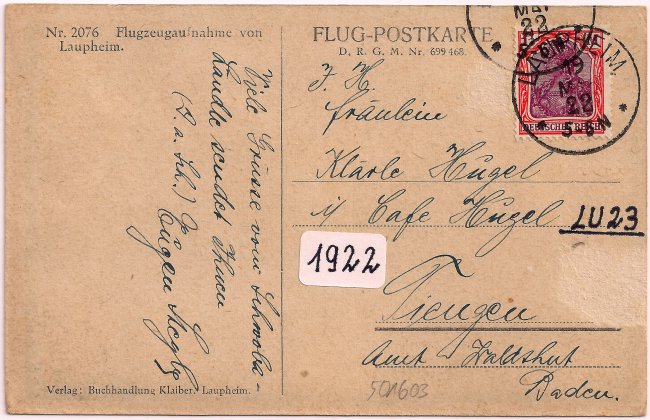 Nr. 2076 Flugzeugaufnahme von
Laupheim.
FLUG-POSTKARTE
D. R. G. M. Nr. 699 468.
MAI
22
LAUPHEIM.
19
22
5-6 N
DEUTSCHES REICH
Viele Grüsse vom Schwoba-
Ländle sendet Ihnen
Eugen
F. H.
Fräulein
Klärle Hügel
i/ Cafe Hügel
LU23
1922
Tiengen
Amt Waldshut
Baden.
501603
Verlag: Buchhandlung Klaiber, Laupheim.